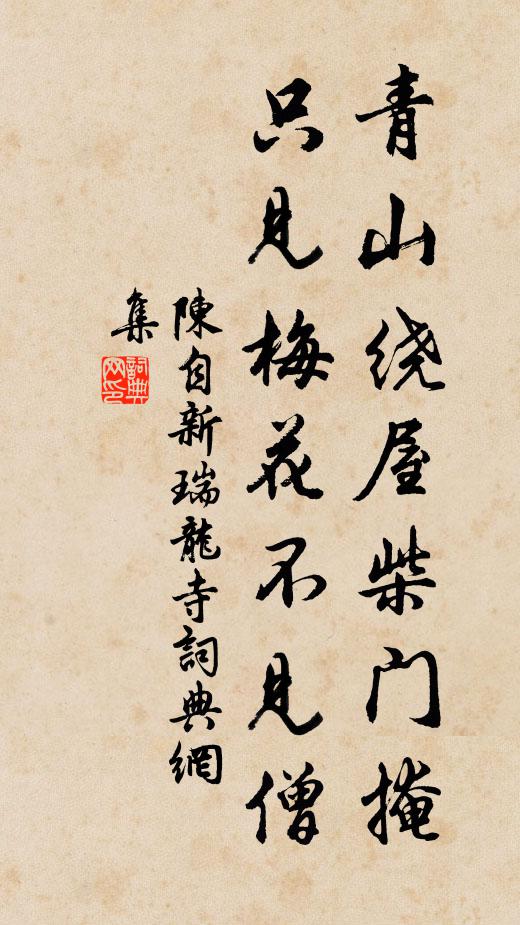 青山绕屋柴门掩
只见梅花不见僧
陳自新瑞龍寺詞典網
集
詞典
网印